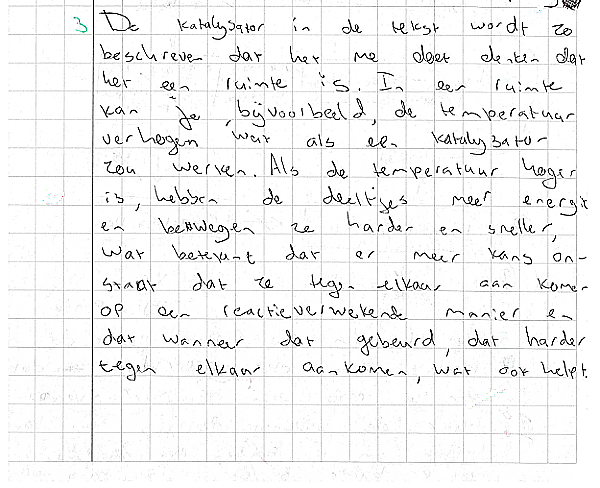 3 De katalysator in de tekst wordt zo
beschreven dat het me doet denken dat
het een ruimte is. In een ruimte
kan je, bijvoorbeeld, de temperatuur
verhogen wat als een katalysator
zou werken. Als de temperatuur hoger
is, hebben de deeltjes meer energie
en bewegen ze harder en sneller,
wat betekent dat er meer kans on-
staat dat ze tegen elkaar aan komen
op een reactieverwekende manier en
dat wanneer dat gebeurd, dat harder
tegen elkaar aankomen, wat ook helpt.